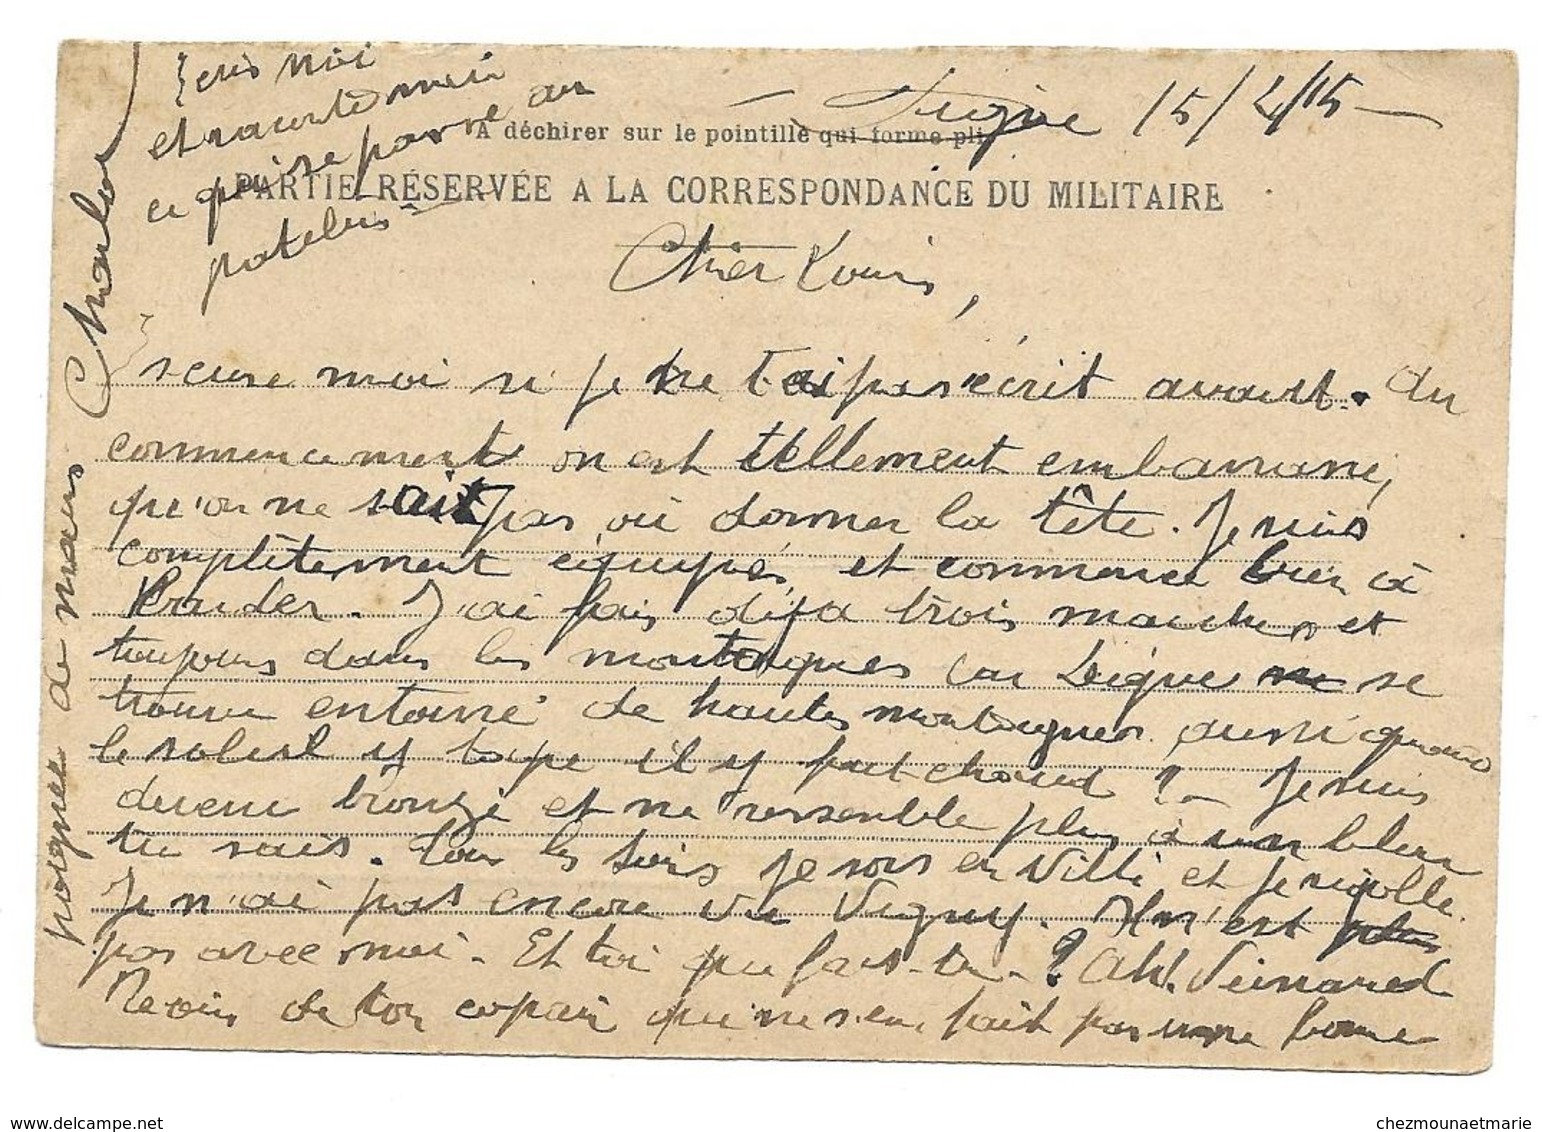 Digne 15/4/15
A déchirer sur le pointillé qui forme pli
PARTIE RÉSERVÉE A LA CORRESPONDANCE DU MILITAIRE
Cher Louis,
Escuse moi si je ne t'ai pas écrit avant. Au
commencement on est tellement embarrassé,
qu'on ne sait pas où donner la tête. Je suis
complètement équipés, et commence bien à
. J'ai fais déja trois marches et
toujours dans les montagnes car Digne se
trouve entouré de hautes montagnes aussi quand
le soleil y tape il y fait chaud ? Je suis
devenu bronzé et ne ressemble plus à un blanc
tu sais. Tous les soirs je sors en ville et je rigolle.
Je n'ai pas encore vu Vigny. Il n'est plus
pas avec moi. Et toi que fais-tu ? Ah!
Reçois de ton copain qui ne s'en fait pas une bonne
poignée de mains Charles
Ecris moi
et raconte moi
ce qui se passe au
patelin
chezmounaetmarie.delcampe.net
chezmounaetmarie